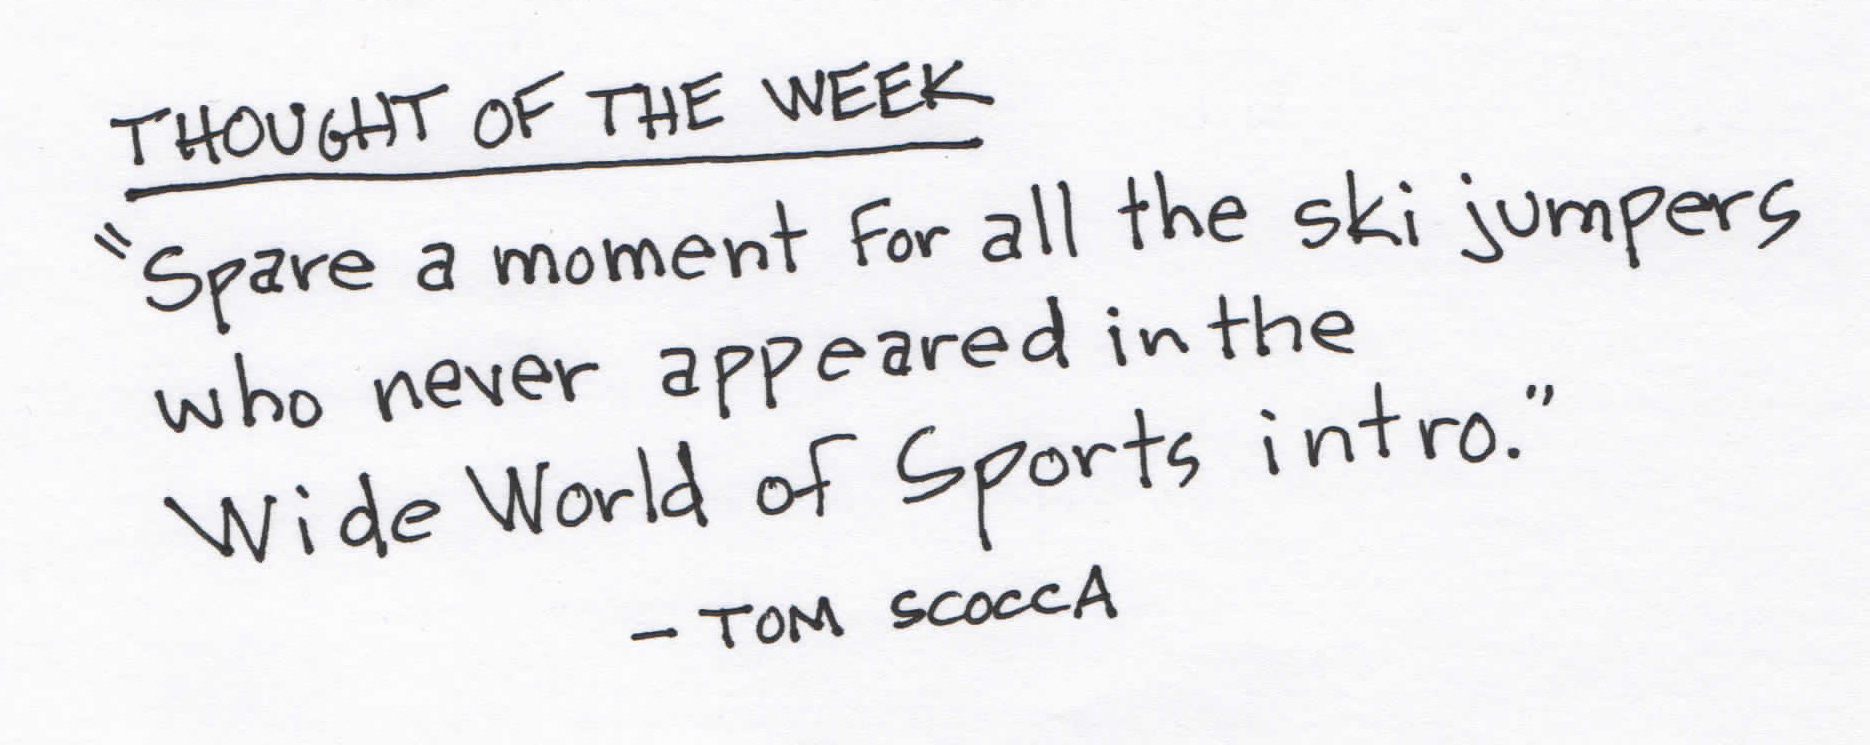 THOUGHT OF THE WEEK
"Spare a moment for all the ski jumpers
who never appeared in the
Wide World of Sports intro."
- TOM SCOCCA